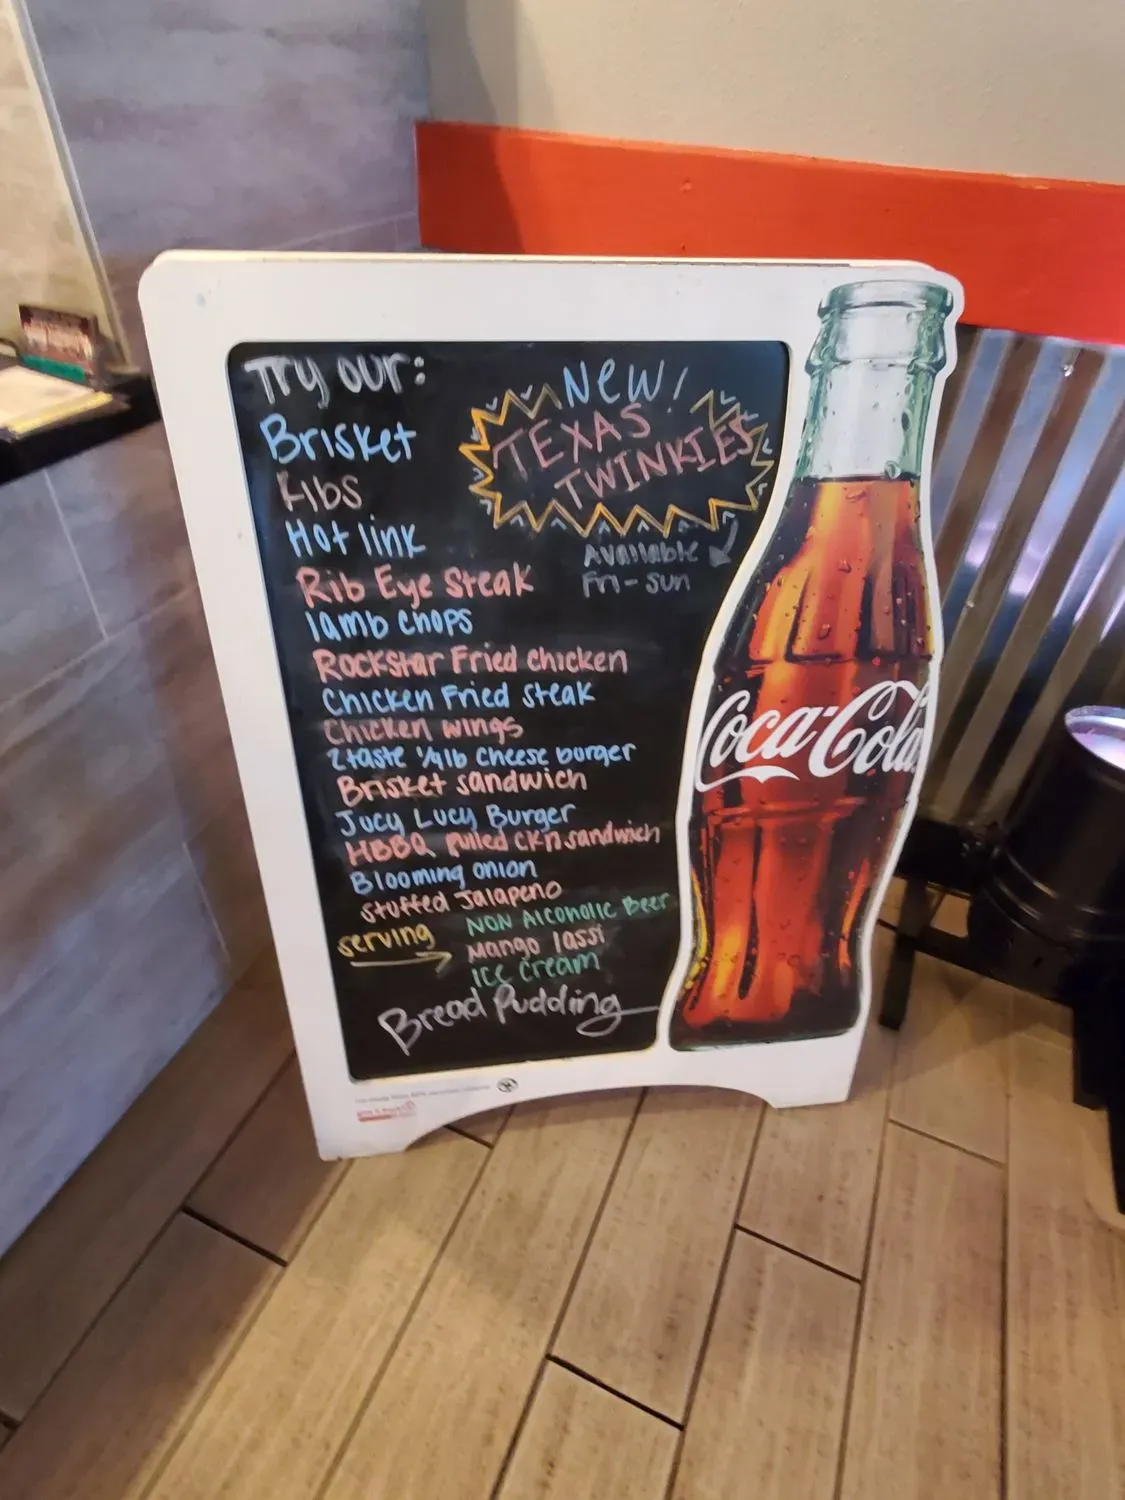 Try our:
Brisket
Ribs
Hot link
Rib Eye Steak
lamb chops
Rockstar Fried chicken
Chicken Fried steak
Chicken wings
2taste 1/4lb cheese burger
Brisket sandwich
Jucy Lucy Burger
HBBQ pulled CKn sandwich
Blooming onion
stuffed Jalapeno
serving
NON Alcoholic Beer
Mango lassi
Ice cream
Bread Pudding
New!
TEXAS
TWINKIES
Available
Fri-sun
Coca-Cola